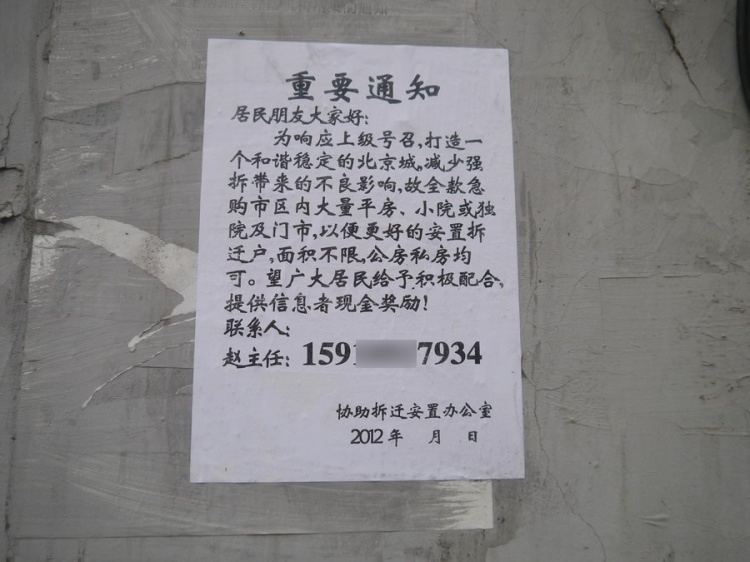 重要通知
居民朋友大家好:
为响应上级号召,打造一
个和谐稳定的北京城,减少强
拆带来的不良影响,故全款急
购市区内大量平房、小院或独
院及门市,以便更好的安置拆
迁户,面积不限,公房私房均
可。望广大居民给予积极配合,
提供信息者现金奖励!
联系人:
赵主任: 1591 7934
协助拆迁安置办公室
2012年 月 日